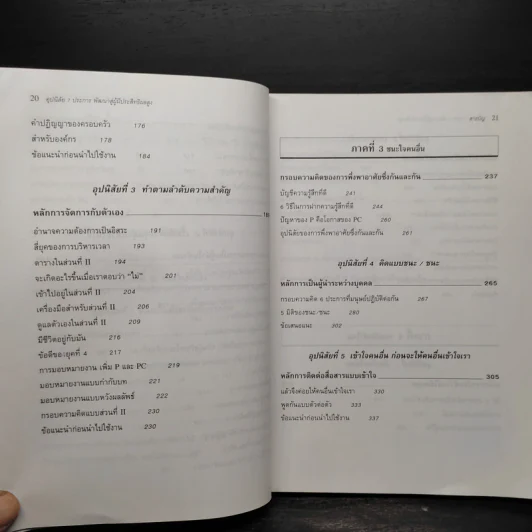 20 อุปนิสัย 7 ประการ พัฒนาสู่ผู้มีประสิทธิผลสูง
คำปฏิญญาของครอบครัว 176
สำหรับองค์กร 178
ข้อแนะนำก่อนนำไปใช้งาน 184
อุปนิสัยที่ 3 ทำตามลำดับความสำคัญ
หลักการจัดการกับตัวเอง
อำนาจความต้องการเป็นอิสระ 191
สี่ยุคของการบริหารเวลา 193
ตารางในส่วนที่ II 194
จะเกิดอะไรขึ้นเมื่อเราตอบว่า "ไม่" 201
เข้าไปอยู่ในส่วนที่ II 204
เครื่องมือสำหรับส่วนที่ II 206
ดูแลตัวเองในส่วนที่ II 209
มีชีวิตอยู่กับมัน 216
ข้อดีของยุคที่ 4 217
การมอบหมายงาน เพิ่ม P และ PC 219
มอบหมายงานแบบกำกับบท 221
มอบหมายงานแบบหวังผลลัพธ์ 222
กรอบความคิดแบบส่วนที่ II 230
ข้อแนะนำก่อนนำไปใช้งาน 230
สารบัญ 21
ภาคที่ 3 ชนะใจคนอื่น
กรอบความคิดของการพึ่งพาอาศัยซึ่งกันและกัน 237
บัญชีความรู้สึกที่ดี 241
6 วิธีในการฝากความรู้สึกที่ดี 244
ปัญหาของ P คือโอกาสของ PC 260
อุปนิสัยของการพึ่งพาอาศัยซึ่งกันและกัน 261
อุปนิสัยที่ 4 คิดแบบชนะ / ชนะ
หลักการเป็นผู้นำระหว่างบุคคล 265
กรอบความคิด 6 ประการที่มนุษย์ปฏิบัติต่อกัน 267
5 มิติของชนะ-ชนะ 280
ข้อเสนอแนะ 302
อุปนิสัยที่ 5 เข้าใจคนอื่น ก่อนจะให้คนอื่นเข้าใจเรา
หลักการติดต่อสื่อสารแบบเข้าใจ 305
แล้วจึงค่อยให้คนอื่นเข้าใจเรา 330
พูดกันแบบตัวต่อตัว 333
ข้อแนะนำก่อนนำไปใช้งาน 337